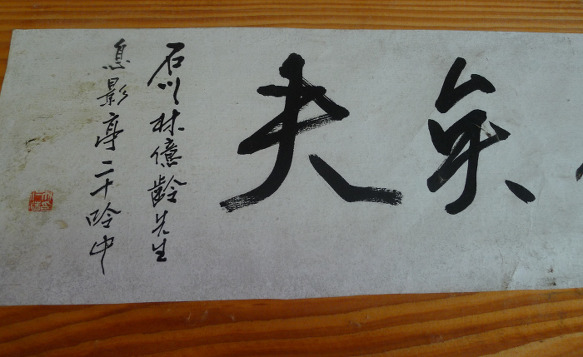 矣夫
石川林億齡先生
息影亭二十吟中